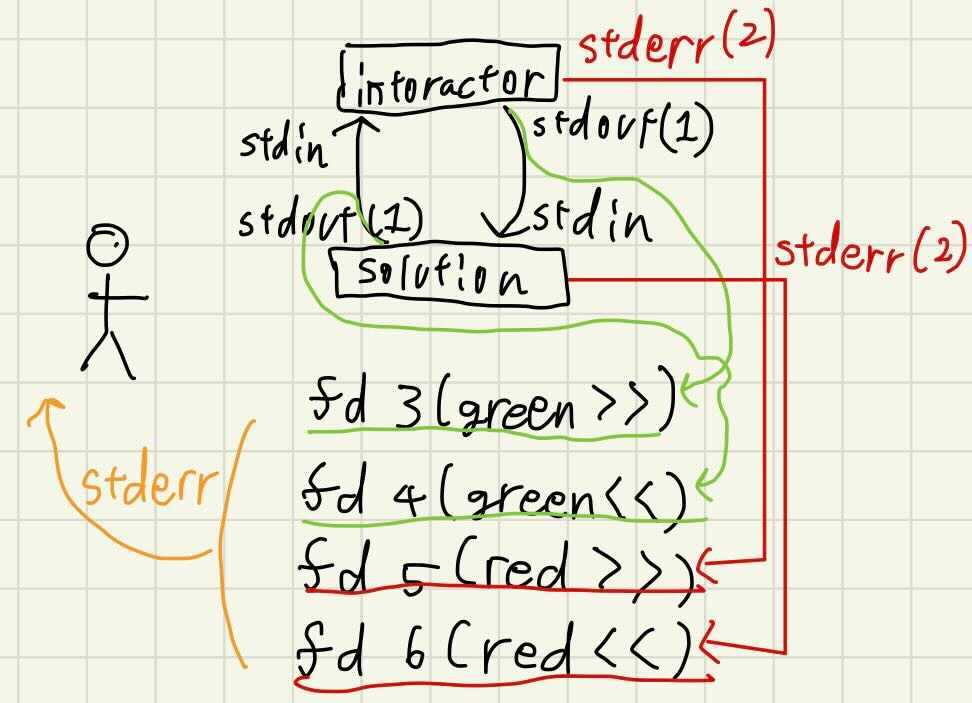 stderr(2)
intoractor
stdin
stdout(1)
stdout(1)
stdin
solution
stderr(2)
fd 3(green >>)
stderr
fd 4(green<<)
fd 5(red >>)
fd 6(red <<)